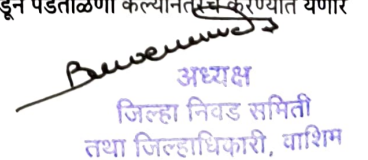 डून पडताळणी केल्यानंतरच करण्यात येणार
अध्यक्ष
जिल्हा निवड समिती
तथा जिल्हाधिकारी, वाशिम